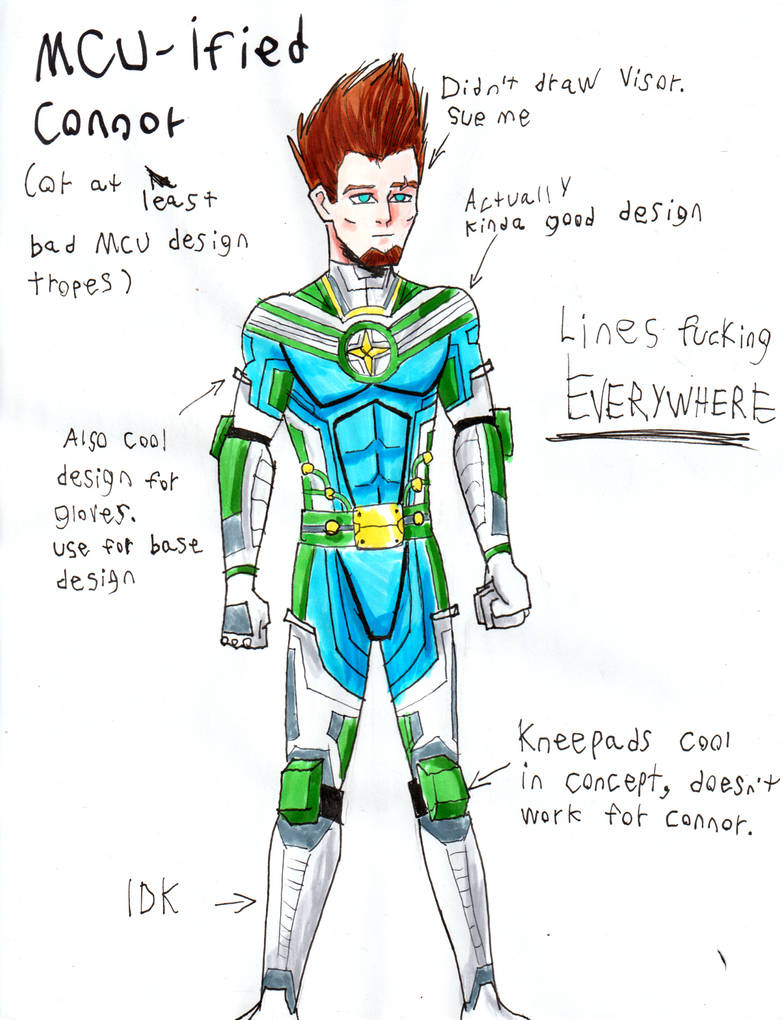 MCU-ified
Connor
(or at least
bad MCU design
tropes)
Didn't draw visor.
sue me
Actually
kinda good design
Lines fucking
EVERYWHERE
Also cool
design for
gloves.
use for base
design
Kneepads cool
in concept, doesn't
work for Connor.
IDK